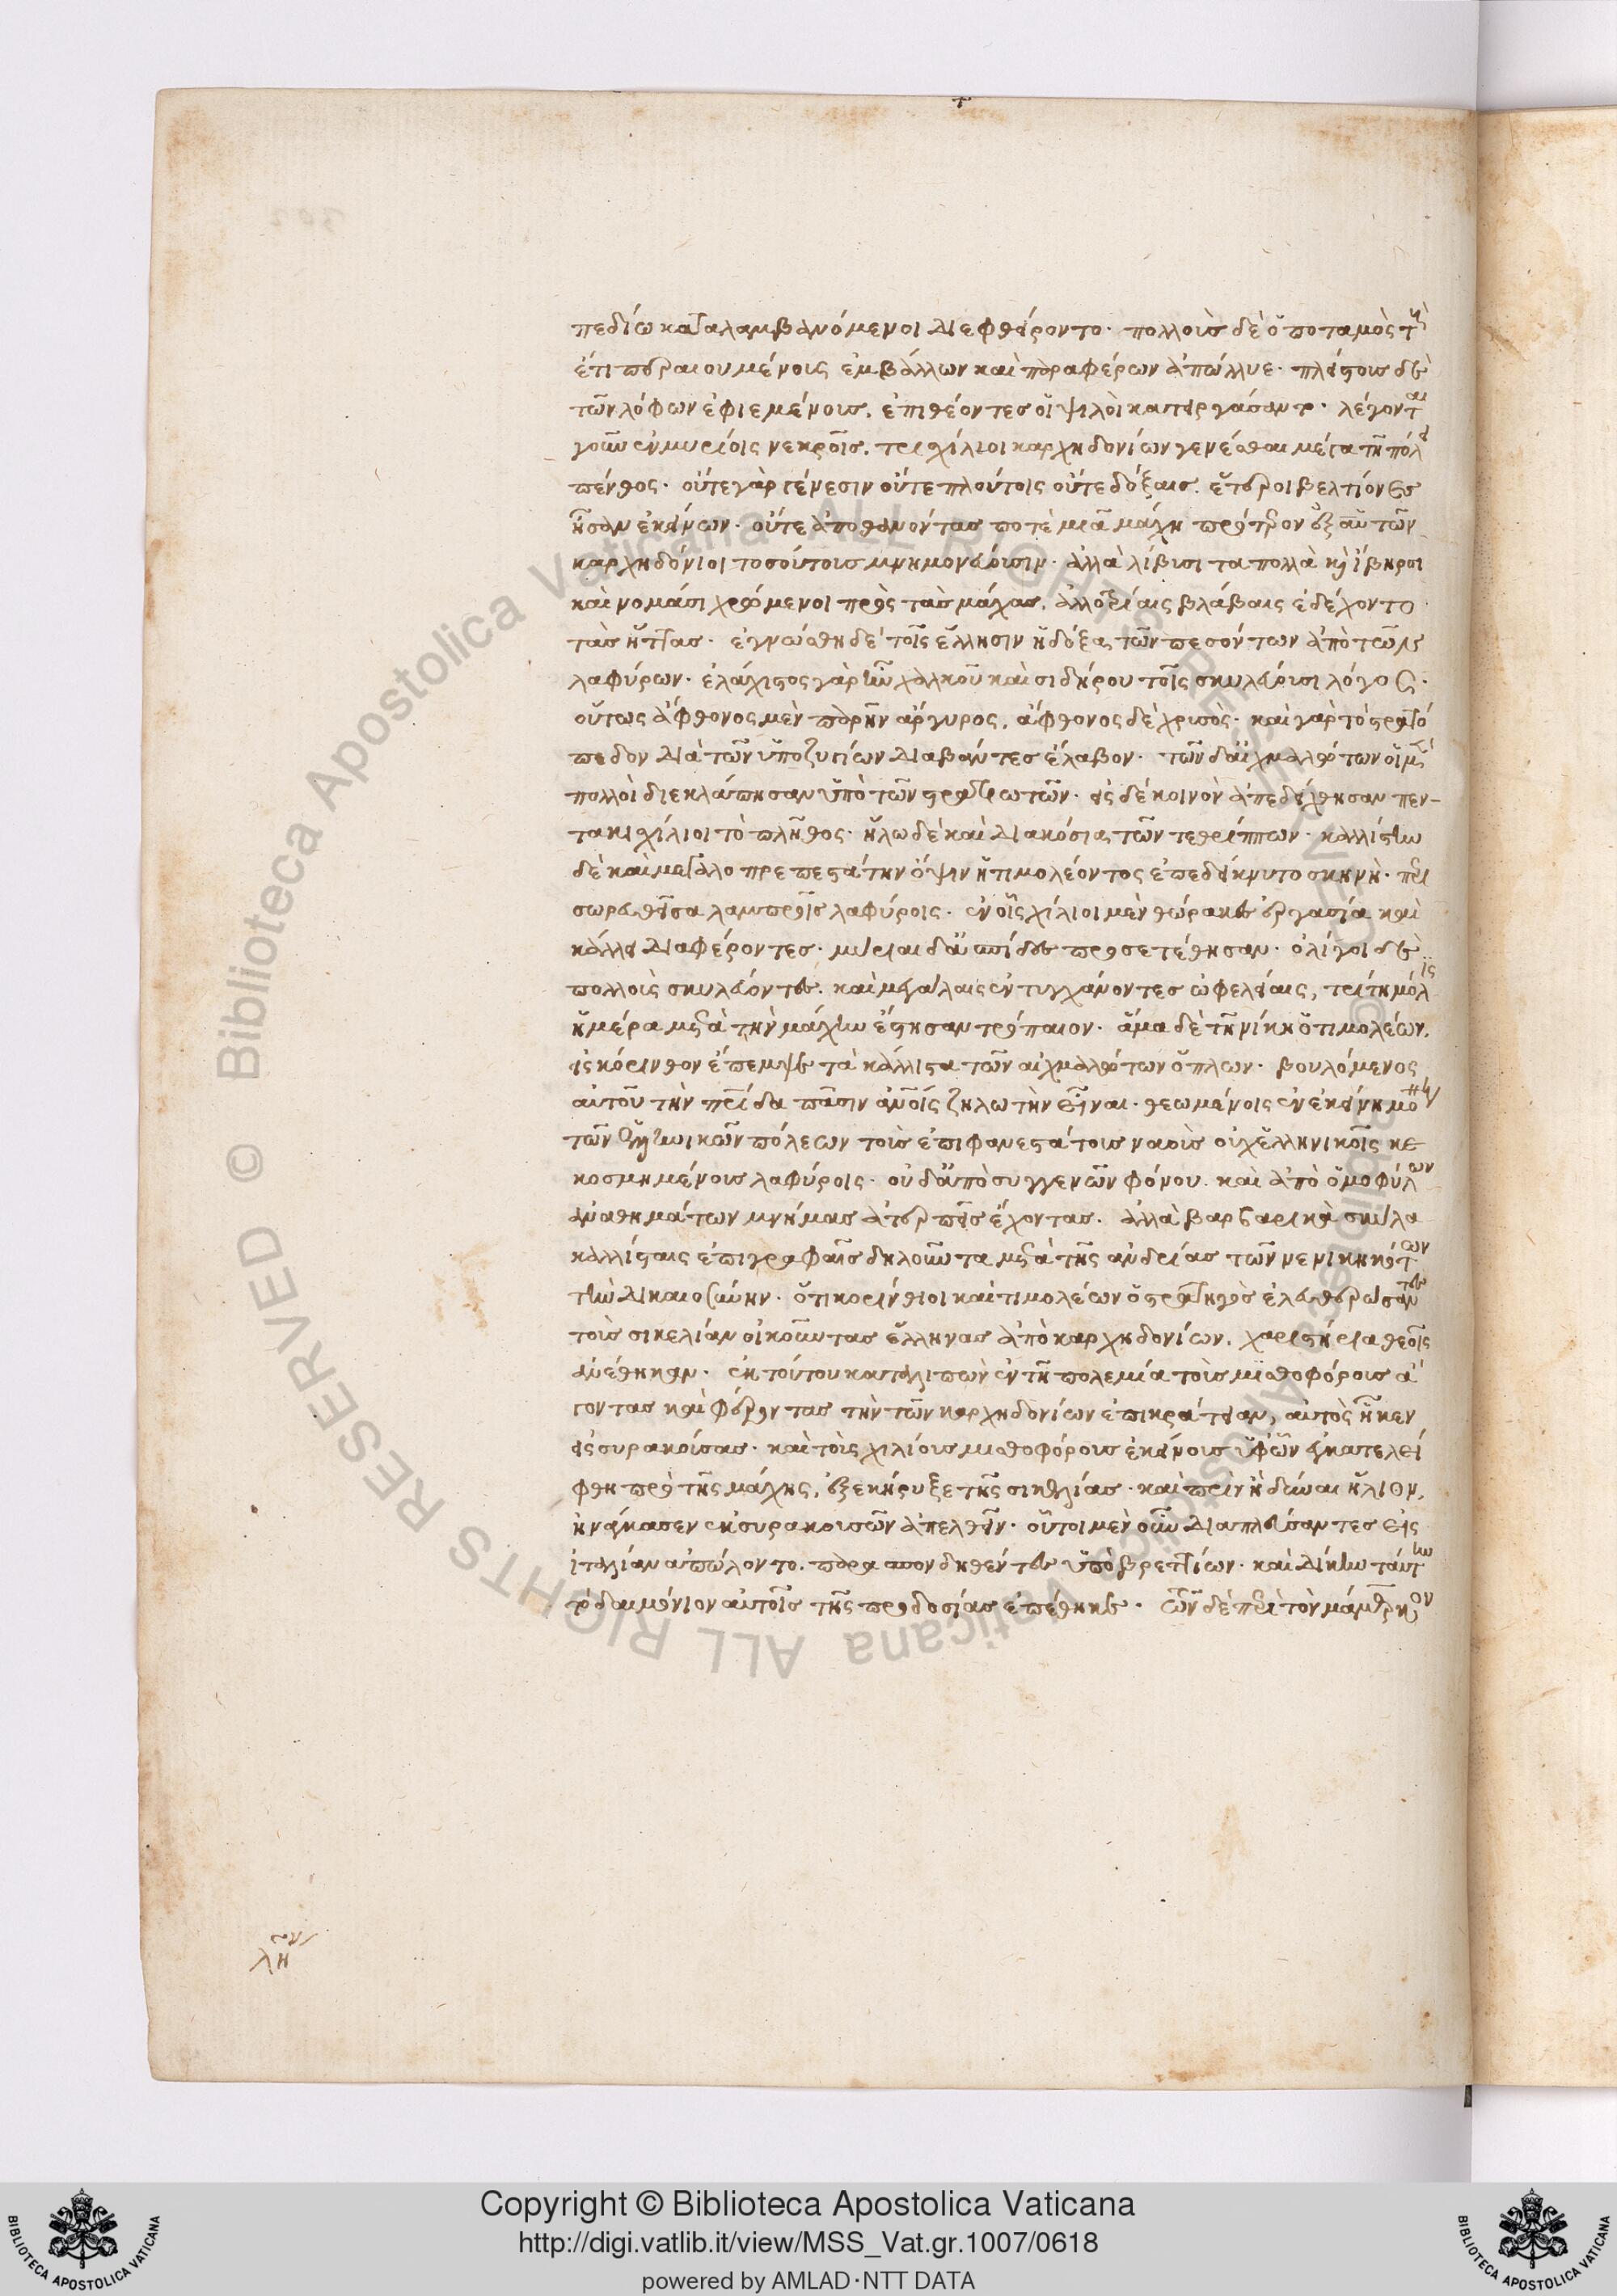 πεδίω καταλαμβανόμενοι διεφθείροντο· πολλοὺς δὲ ὁ ποταμὸς τοῖς
ἔτι περαιουμένοις ἐμβάλλων καὶ παραφέρων ἀπώλλυε· πλείστους δὲ
τῶν λόφων ἐφιεμένους, ἐπιθέοντες οἱ ψιλοὶ κατειργάσαντο· λέγονται
γοῦν ἐν μυρίοις νεκροῖς, τρισχίλιοι καρχηδονίων γενέσθαι μέγα τῆ πόλει
πένθος· οὔτε γὰρ γένεσιν οὔτε πλούτοις οὔτε δόξαις, ἕτεροι βελτίονες
ἦσαν ἐκείνων· οὔτε ἀποθανόντας ποτὲ μιᾶ μάχη πρότερον ἐξ αὐτῶν
καρχηδόνιοι τοσούτους μνημονεύουσιν· ἀλλὰ λίβυσι τα πολλὰ κὶ ἴβηροι
καὶ νομάσι χρώμενοι πρὸς τὰς μάχας, ἀλλοτρίαις βλάβαις ἐδέχοντο
τὰς ἥττας· ἐγνώσθη δὲ τοῖς ἕλλησιν ἡ δόξα τῶν πεσόντων ἀπὸ τῶν
λαφύρων· ἐλάχιστος γὰρ ἦν χαλκοῦ καὶ σιδήρου τοῖς σκυλεύουσι λόγος·
οὕτως ἄφθονος μὲν παρῆν ἄργυρος, ἄφθονος δὲ χρυσός· καὶ γὰρ τὸ στρατό
πεδον διὰ τῶν ὑποζυγίων διαβάντες ἔλαβον· τῶν δ' αἰχμαλώτων οἱ μὲν
πολλοὶ διεκλάπησαν ὑπὸ τῶν στρατιωτῶν· εἰς δὲ κοινὸν ἀπεδείχθησαν πεν-
τακισχίλιοι τὸ πλῆθος· ἥλω δὲ καὶ διακόσια τῶν τεθρίππων· καλλίστην
δὲ καὶ μεγαλοπρεπεστάτην ὄψιν ἡ τιμολέοντος ἐπεδείκνυτο σκηνὴ· περι
σωρευθεῖσα λαμπροῖς λαφύροις· ἐν οἷς χίλιοι μὲν θώρακες ἐργασία καὶ
κάλλει διαφέροντες· μυρίαι δ' ἀσπίδες προσετέθησαν· ὀλίγοι δὲ
πολλοὺς σκυλεύοντες, καὶ μεγάλαις ἐντυγχάνοντες ὠφελείαις, τρίτη μόλις
ἡμέρα μετὰ τὴν μάχην ἔστησαν τρόπαιον· ἅμα δὲ τῆ νίκη ὁ τιμολέων,
εἰς κόρινθον ἔπεμψε τὰ κάλλιστα τῶν αἰχμαλώτων ὅπλων· βουλόμενος
αὑτοῦ τὴν πατρίδα πᾶσιν ἀνθρώποις ζηλωτὴν εἶναι· θεωμένοις ἐν ἐκείνη μόνη
τῶν ἑλληνικῶν πόλεων τοὺς ἐπιφανεστάτους ναοὺς οὐχ ἑλληνικοῖς κε
κοσμημένους λαφύροις· οὐδ' ἀπὸ συγγενῶν φόνου, καὶ ἀπὸ ὁμοφύλων
ἀναθημάτων μνήμας ἀτερπεῖς ἔχοντας· ἀλλὰ βαρβαρικὰ σκῦλα
καλλίσταις ἐπιγραφαῖς δηλοῦντα μετὰ τῆς ἀνδρίας τῶν νενικηκότων
τὴν δικαιοσύνην· ὅτι κορίνθιοι καὶ τιμολέων ὁ στρατηγὸς ἐλευθερώσαντες
τοὺς σικελίαν οἰκοῦντας ἕλληνας ἀπὸ καρχηδονίων, χαριστήρια θεοῖς
ἀνέθηκαν· ἐκ τούτου καταλιπὼν ἐν τῆ πολεμία τοὺς μισθοφόρους ἄ
γοντας καὶ φέροντας τὴν τῶν καρχηδονίων ἐπικράτειαν, αὐτὸς ἧκεν
εἰς συρακούσας· καὶ τοὺς χιλίους μισθοφόρους ἐκείνους ὑφ' ὧν ἐγκατελεί
φθη πρὸ τῆς μάχης, ἐξεκήρυξε τῆς σικελίας· καὶ πρὶν ἢ δῦναι ἥλιον,
ἠνάγκασεν ἐκ συρακουσῶν ἀπελθεῖν· οὗτοι μὲν οὖν διαπλεύσαντες εἰς
ἰταλίαν ἀπώλοντο, παρασπονδηθέντες ὑπὸ βρεττίων· καὶ δίκην ταύτην
τὸ δαιμόνιον αὐτοῖς τῆς προδοσίας ἐπέθηκε· τῶν δὲ περὶ τὸν μάμερκον